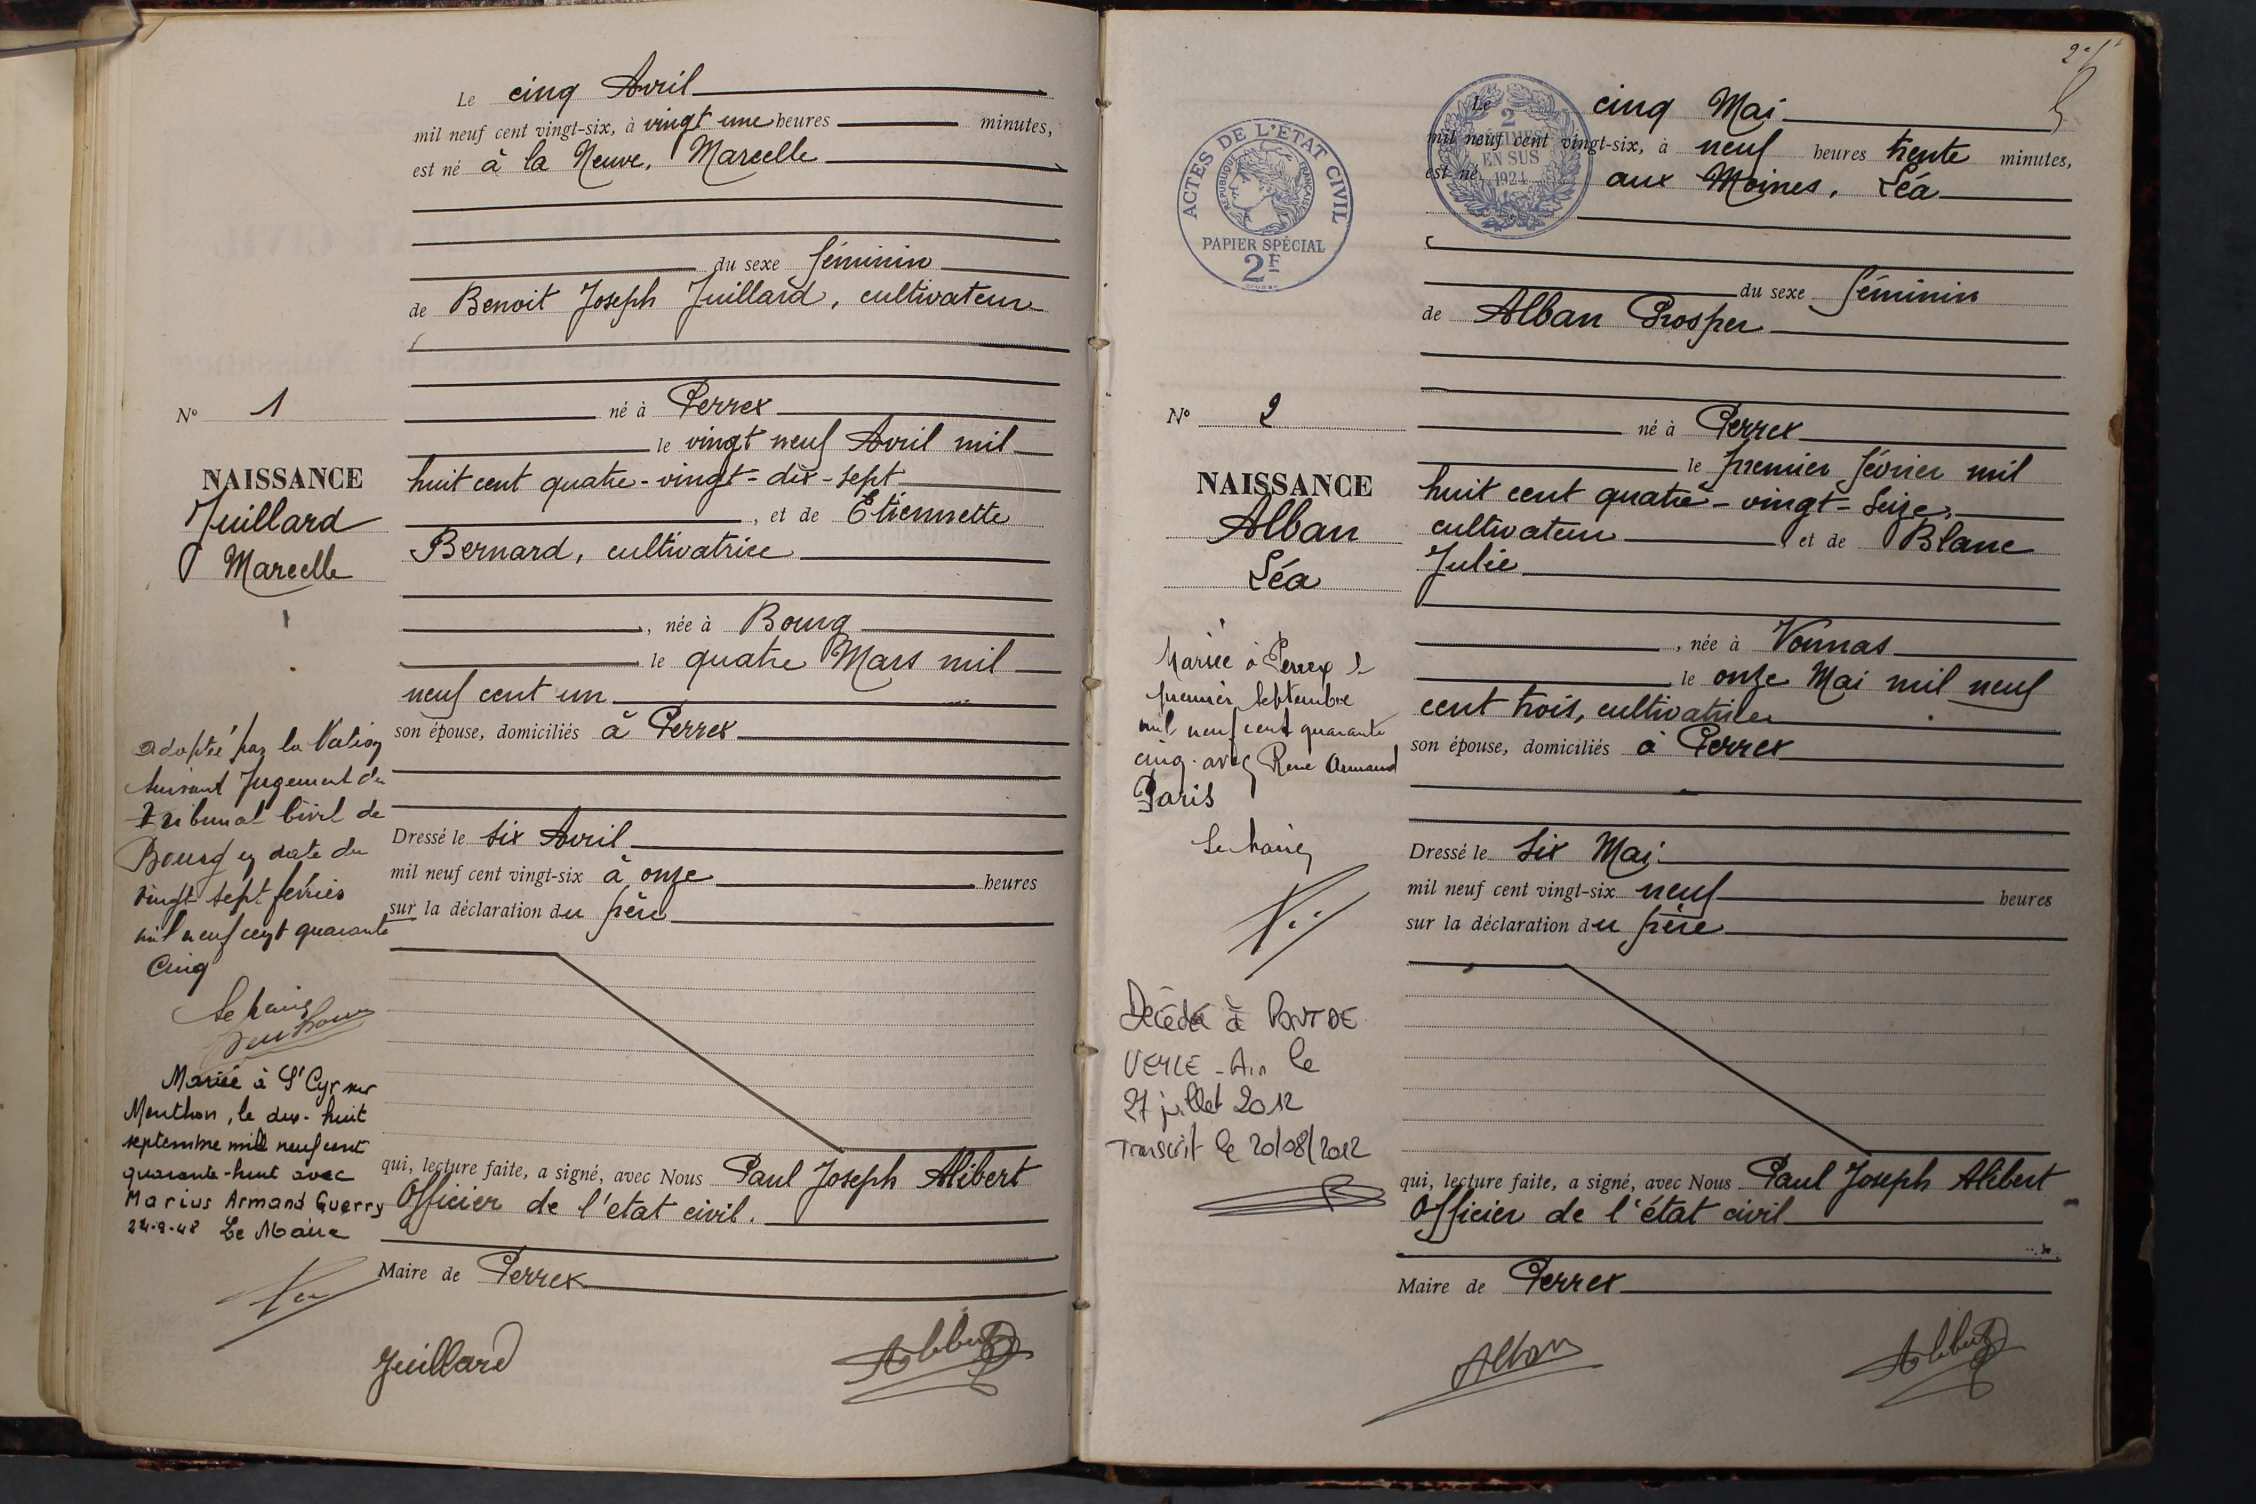 Le cinq Avril
mil neuf cent vingt-six, à vingt une heures minutes,
est né à la Neuve, Marcelle
du sexe féminin
de Benoit Joseph Juillard, cultivateur
né à Perrex
le vingt neuf Avril mil
huit cent quatre-vingt-dix-sept
, et de Etiennette
Bernard, cultivatrice
, née à Bourg
le quatre Mars mil
neuf cent un
son épouse, domiciliés à Perrex
Dressé le six Avril
mil neuf cent vingt-six à onze heures
sur la déclaration du père
qui, lecture faite, a signé, avec Nous Paul Joseph Alibert
Officier de l'état civil.
Maire de Perrex
Juillard
Alibert
N° 1
NAISSANCE
Juillard
Marcelle
adoptée par la Nation
suivant Jugement du
Tribunal Civil de
Bourg en date du
vingt sept février
mil neuf cent quarante
Cinq
Le Maire
Mariée à St Cyr sur
Menthon, le dix-huit
septembre mil neuf cent
quarante-huit avec
Marius Armand Guerry
24-9-48 Le Maire
ACTES DE L'ETAT CIVIL
REPUBLIQUE FRANÇAISE
PAPIER SPÉCIAL
2F
2
DÉCIMES
EN SUS
1924
Le cinq Mai
mil neuf cent vingt-six, à neuf heures trente minutes,
est né aux Moines, Léa
du sexe féminin
de Alban Prosper
né à Perrex
le premier février mil
huit cent quatre-vingt-seize,
cultivateur et de Blanc
Julie
, née à Vonnas
le onze Mai mil neuf
cent trois, cultivatrice
son épouse, domiciliés à Perrex
Dressé le six Mai
mil neuf cent vingt-six neuf heures
sur la déclaration du père
qui, lecture faite, a signé, avec Nous Paul Joseph Alibert
Officier de l'état civil
Maire de Perrex
Alban
Alibert
N° 2
NAISSANCE
Alban
Léa
Mariée à Perrex le
premier Septembre
mil neuf cent quarante
cinq avec René Armand
Paris
Le Maire
Décédée à PONT DE
VEYLE - Ain le
27 juillet 2012
Transcrit le 20/08/2012